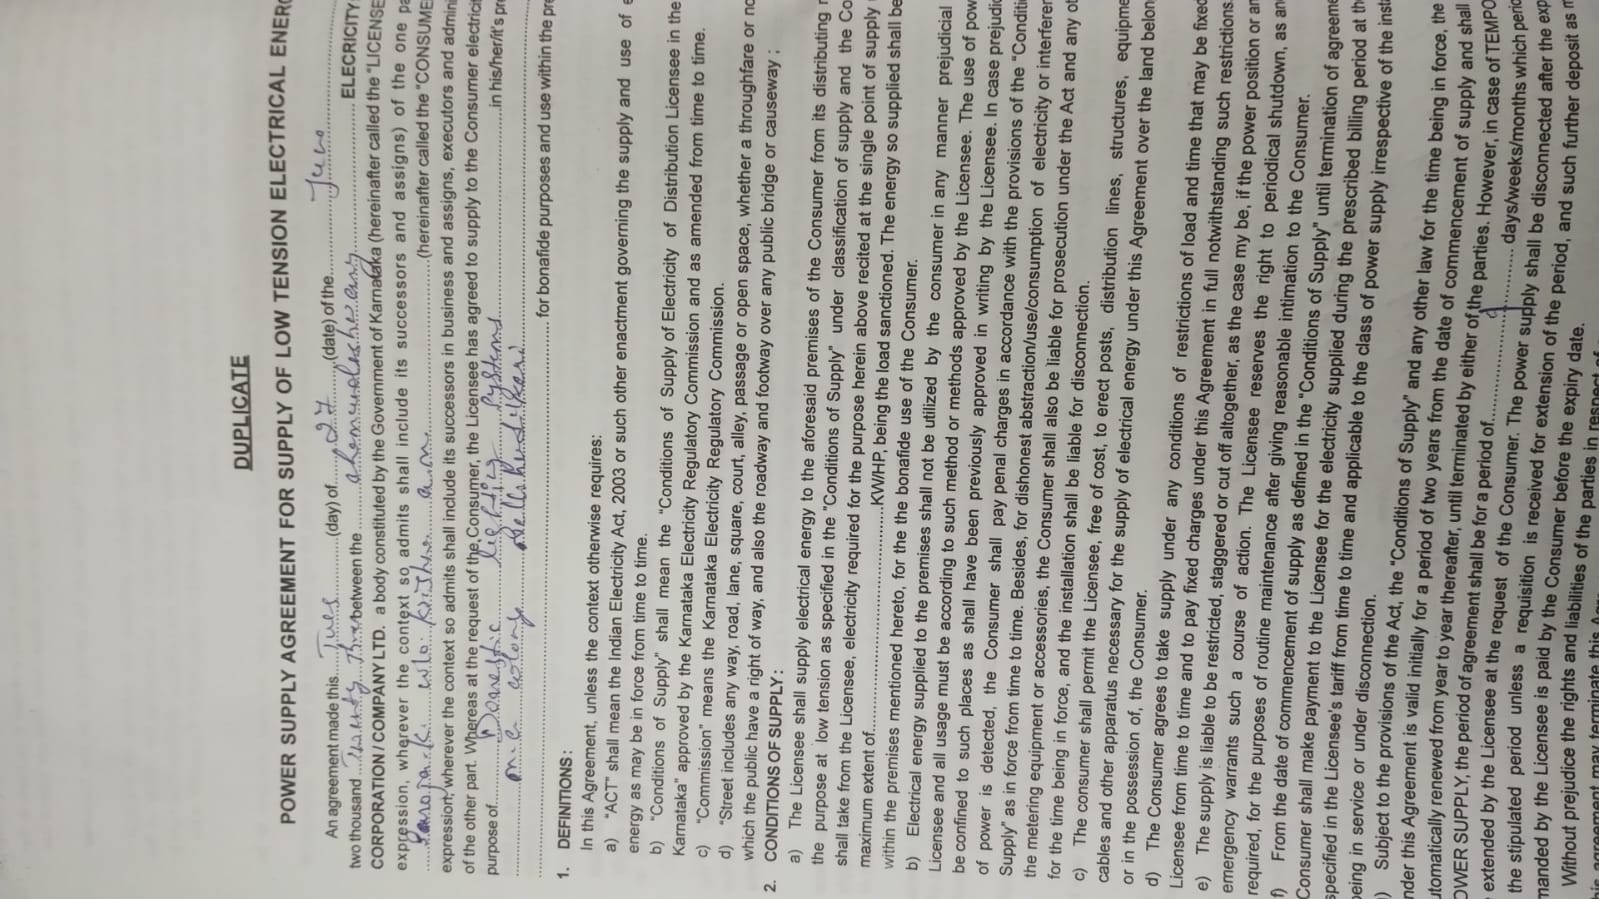 DUPLICATE
POWER SUPPLY AGREEMENT FOR SUPPLY OF LOW TENSION ELECTRICAL ENERG
An agreement made this Tues (day) of 27 (date) of the June
two thousand Twenty Three between the ELECRICITY
CORPORATION / COMPANY LTD. a body constituted by the Government of Karnataka (hereinafter called the "LICENSE
expression, wherever the context so admits shall include its successors and assigns) of the one pa
(hereinafter called the "CONSUME
expression, wherever the context so admits shall include its successors in business and assigns, executors and admini
of the other part. Whereas at the request of the Consumer, the Licensee has agreed to supply to the Consumer electricit
purpose of Domestic lighting systems in his/her/it's pr
m c colony for bonafide purposes and use within the pre
1. DEFINITIONS :
In this Agreement, unless the context otherwise requires:
a) "ACT" shall mean the Indian Electricity Act, 2003 or such other enactment governing the supply and use of e
energy as may be in force from time to time.
b) "Conditions of Supply" shall mean the "Conditions of Supply of Electricity of Distribution Licensee in the
Karnataka" approved by the Karnataka Electricity Regulatory Commission and as amended from time to time.
c) "Commission" means the Karnataka Electricity Regulatory Commission.
d) "Street includes any way, road, lane, square, court, alley, passage or open space, whether a throughfare or no
which the public have a right of way, and also the roadway and footway over any public bridge or causeway ;
2. CONDITIONS OF SUPPLY :
a) The Licensee shall supply electrical energy to the aforesaid premises of the Consumer from its distributing
the purpose at low tension as specified in the "Conditions of Supply" under classification of supply and the Co
shall take from the Licensee, electricity required for the purpose herein above recited at the single point of supply
maximum extent of KW/HP, being the load sanctioned. The energy so supplied shall be
within the premises mentioned hereto, for the bonafide use of the Consumer.
b) Electrical energy supplied to the premises shall not be utilized by the consumer in any manner prejudicial
Licensee and all usage must be according to such method or methods approved by the Licensee. The use of pow
be confined to such places as shall have been previously approved in writing by the Licensee. In case prejudic
of power is detected, the Consumer shall pay penal charges in accordance with the provisions of the "Conditi
Supply" as in force from time to time. Besides, for dishonest abstraction/use/consumption of electricity or interferen
the metering equipment or accessories, the Consumer shall also be liable for prosecution under the Act and any ot
for the time being in force, and the installation shall be liable for disconnection.
c) The consumer shall permit the Licensee, free of cost, to erect posts, distribution lines, structures, equipme
cables and other apparatus necessary for the supply of electrical energy under this Agreement over the land belon
or in the possession of, the Consumer.
d) The Consumer agrees to take supply under any conditions of restrictions of load and time that may be fixed
Licensee from time to time and to pay fixed charges under this Agreement in full notwithstanding such restrictions.
e) The supply is liable to be restricted, staggered or cut off altogether, as the case may be, if the power position or an
emergency warrants such a course of action. The Licensee reserves the right to periodical shutdown, as an
required, for the purposes of routine maintenance after giving reasonable intimation to the Consumer.
f) From the date of commencement of supply as defined in the "Conditions of Supply" until termination of agreeme
Consumer shall make payment to the Licensee for the electricity supplied during the prescribed billing period at th
specified in the Licensee's tariff from time to time and applicable to the class of power supply irrespective of the inst
being in service or under disconnection.
) Subject to the provisions of the Act, the "Conditions of Supply" and any other law for the time being in force, the
nder this Agreement is valid initially for a period of two years from the date of commencement of supply and shall
utomatically renewed from year to year thereafter, until terminated by either of the parties. However, in case of TEMPO
OWER SUPPLY, the period of agreement shall be for a period of days/weeks/months which perio
extended by the Licensee at the request of the Consumer. The power supply shall be disconnected after the exp
the stipulated period unless a requisition is received for extension of the period, and such further deposit as m
manded by the Licensee is paid by the Consumer before the expiry date.
Without prejudice the rights and liabilities of the parties in respect of
his agreement may terminate this